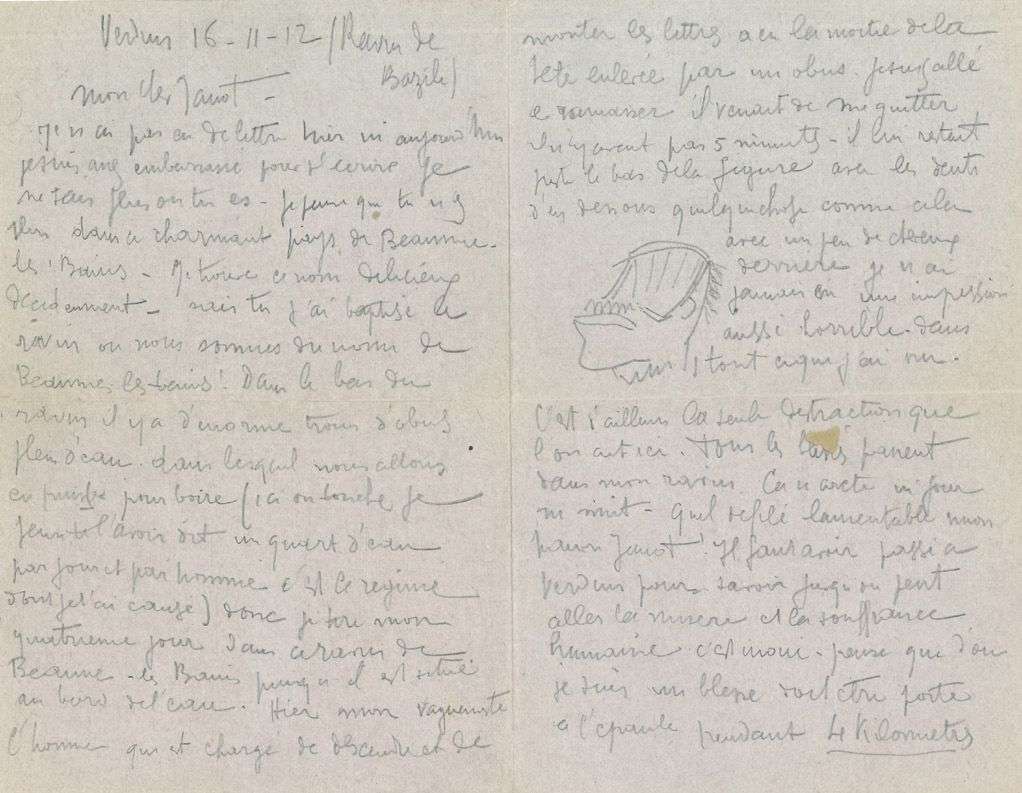 Verdun 16-11-12 (Ravin de
Bazile)
mon cher Janot -
Je n'ai pas eu de lettre hier ni aujourd'hui
je suis assez embarrassé pour t'ecrire je
ne sais plus ou tu es - je pense que tu n'es
plus dans ce charmant pays de Beaume-
les Bains - Je trouve ce nom delicieux
decidemment - sais tu j'ai baptisé ce
ravin ou nous sommes du nom de
Beaume les bains! Dans le bas du
ravin il y a d'enorme trous d'obus
plein d'eau dans lesquel nous allons
en puiser pour boire (ici on touche je
l'avoir dit un quart d'eau
par jour et par homme c'est le regime
dont je t'ai causé) donc je tire mon
quatrieme jour dans ce ravin de
Beaume-les Bains puisqu'il est situé
au bord de l'eau. Hier mon vaguemestre
l'homme qui est chargé de descendre et de
monter les lettres a eu la moitie de la
tete enlevée par un obus. Je suis allé
le ramasser il venait de me quitter
il n'y avait pas 5 minutes - il lui restait
juste le bas de la figure avec les dents
d'en dessous quelque chose comme cela
avec un peu de cheveux
derriere je n'ai
jamais eu une impression
aussi horrible dans
tout ce que j'ai vu.
C'est d'ailleurs la seule distraction que
l'on ait ici. Tous les passent
dans mon ravin. Ca n'arrete ni jour
ni nuit - Quel defilé lamentable mon
pauvre Janot! Il faut avoir passé a
Verdun pour savoir jusqu'ou peut
aller la misere et la souffrance
humaine c'est inoui - pense que d'ou
je suis un blessé doit etre porté
a l'epaule pendant 4 Kilometres